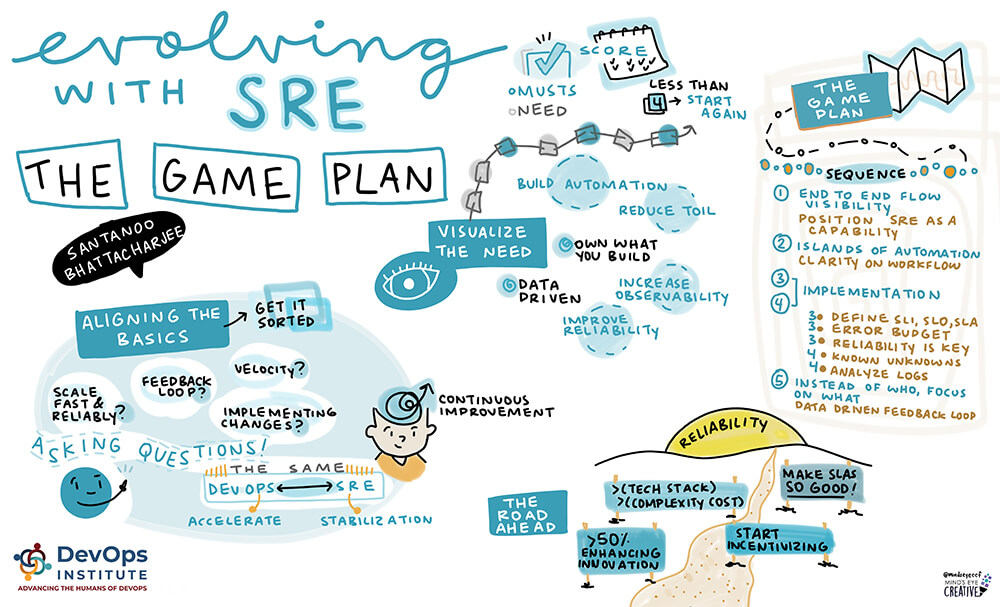 evolving
WITH SRE
THE GAME PLAN
SANTANOO
BHATTACHARJEE
SCORE
MUSTS
NEED
LESS THAN
4 → START
AGAIN
BUILD AUTOMATION
REDUCE TOIL
VISUALIZE
THE NEED
OWN WHAT
YOU BUILD
DATA
DRIVEN
INCREASE
OBSERVABILITY
IMPROVE
RELIABILITY
THE
GAME
PLAN
SEQUENCE
1 END TO END FLOW
VISIBILITY
POSITION SRE AS A
CAPABILITY
2 ISLANDS OF AUTOMATION
CLARITY ON WORKFLOW
3
4 IMPLEMENTATION
3• DEFINE SLI, SLO, SLA
3• ERROR BUDGET
3• RELIABILITY IS KEY
4• KNOWN UNKNOWNS
4• ANALYZE LOGS
5 INSTEAD OF WHO, FOCUS
ON WHAT
DATA DRIVEN FEEDBACK LOOP
ALIGNING THE
BASICS
→ GET IT
SORTED
SCALE
FAST &
RELIABLY?
FEEDBACK
LOOP?
VELOCITY?
IMPLEMENTING
CHANGES?
CONTINUOUS
IMPROVEMENT
ASKING QUESTIONS!
THE SAME
DEVOPS ↔ SRE
ACCELERATE
STABILIZATION
THE
ROAD
AHEAD
RELIABILITY
>(TECH STACK)
>(COMPLEXITY COST)
MAKE SLAS
SO GOOD!
>50%
ENHANCING
INNOVATION
START
INCENTIVIZING
DevOps
INSTITUTE
ADVANCING THE HUMANS OF DEVOPS
@mindseyeccf
MIND'S EYE
CREATIVE